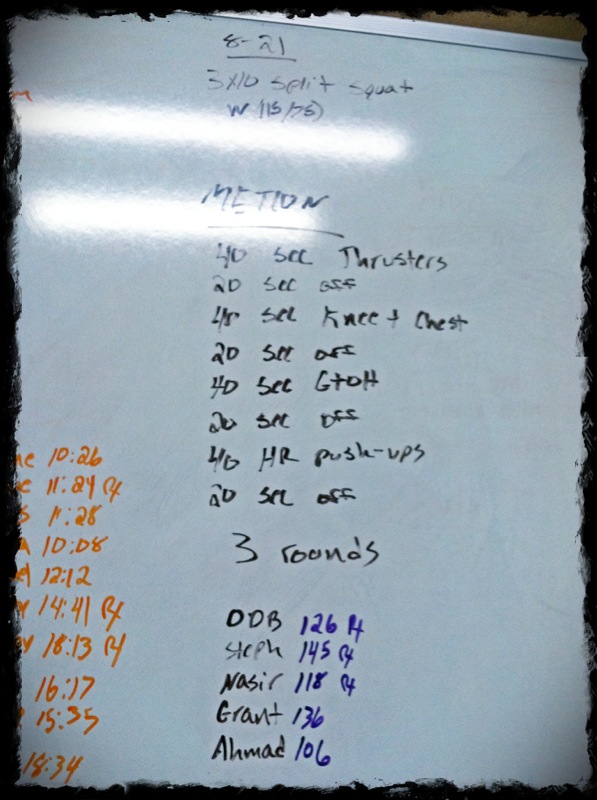 8-21
3x10 split squat
W (115/75)
METCON
40 sec Thrusters
20 sec off
40 sec Knee + Chest
20 sec off
40 sec GtOH
20 sec off
40 HR push-ups
20 sec off
3 rounds
ODB 126 Rx
Steph 145 Rx
Nasir 118 Rx
Grant 136
Ahmad 106
10:26
11:24 Rx
11:28
10:08
12:12
14:41 Rx
18:13 Rx
16:17
15:35
18:34